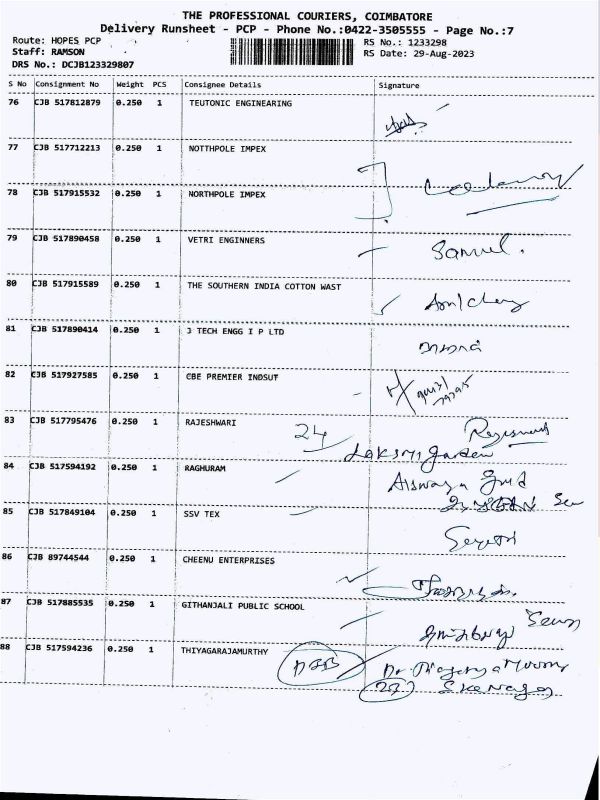 THE PROFESSIONAL COURIERS, COIMBATORE
Delivery Runsheet - PCP - Phone No.:0422-3505555 - Page No.:7
Route: HOPES PCP RS No.: 1233298
Staff: RAMSON RS Date: 29-Aug-2023
DRS No.: DCJB123329807
S No Consignment No Weight PCS Consignee Details Signature
76 CJB 517812879 0.250 1 TEUTONIC ENGINEARING
77 CJB 517712213 0.250 1 NOTTHPOLE IMPEX
78 CJB 517915532 0.250 1 NORTHPOLE IMPEX
79 CJB 517890458 0.250 1 VETRI ENGINNERS
80 CJB 517915589 0.250 1 THE SOUTHERN INDIA COTTON WAST
81 CJB 517890414 0.250 1 J TECH ENGG I P LTD
82 CJB 517927585 0.250 1 CBE PREMIER INDSUT
83 CJB 517795476 0.250 1 RAJESHWARI 24
84 CJB 517594192 0.250 1 RAGHURAM
85 CJB 517849104 0.250 1 SSV TEX
86 CJB 89744544 0.250 1 CHEENU ENTERPRISES
87 CJB 517885535 0.250 1 GITHANJALI PUBLIC SCHOOL
88 CJB 517594236 0.250 1 THIYAGARAJAMURTHY